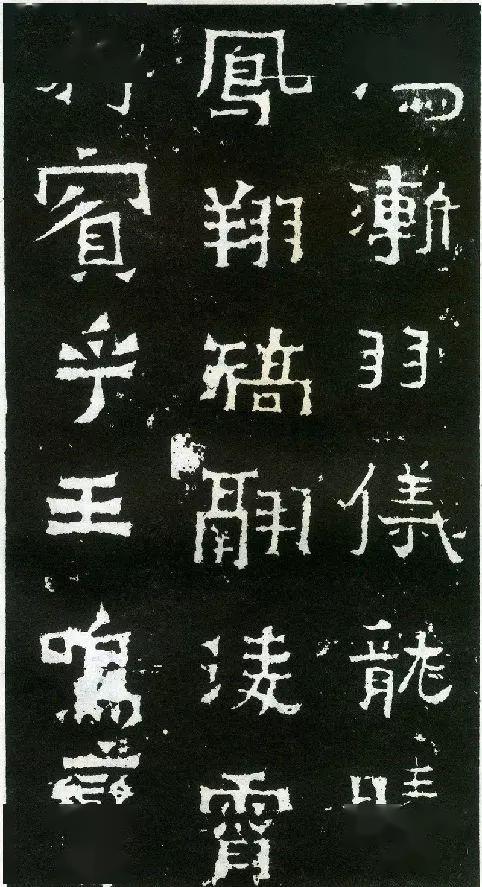 漸羽儀龍
鳳翔矯翮淩霄
賓乎王鳴